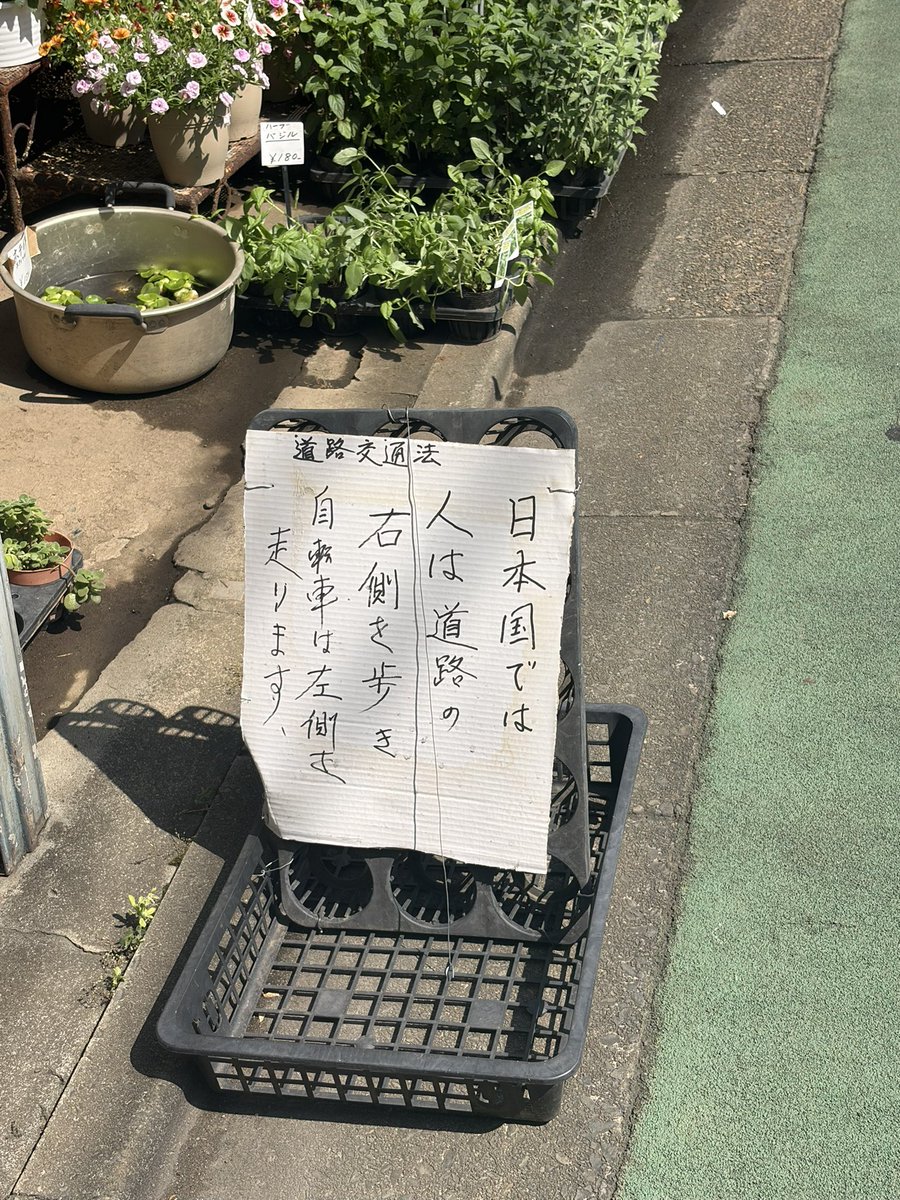 ハーブ
バジル
¥180-
道路交通法
日本国では
人は道路の
右側を歩き
自転車は左側を
走ります、